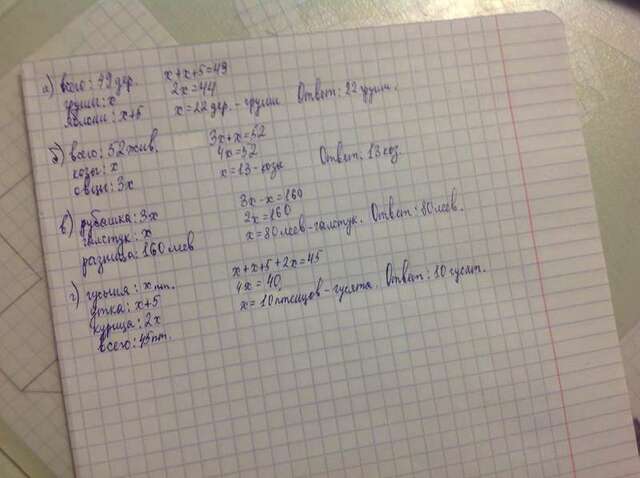 а) всего: 49 дер. x+x+5=49
груши: x 2x=44
яблони: x+5 x=22 дер. - груши Ответ: 22 груши.
б) всего: 52 жив. 3x+x=52
козы: x 4x=52
овцы: 3x x=13 - козы Ответ: 13 коз.
в) рубашка: 3x 3x-x=160
галстук: x 2x=160
разница: 160 леев x=80 леев - галстук. Ответ: 80 леев.
г) гусыня: x пт. x+x+5+2x=45
утка: x+5 4x=40
курица: 2x x=10 птенцов - гусята. Ответ: 10 гусят.
всего: 45 пт.